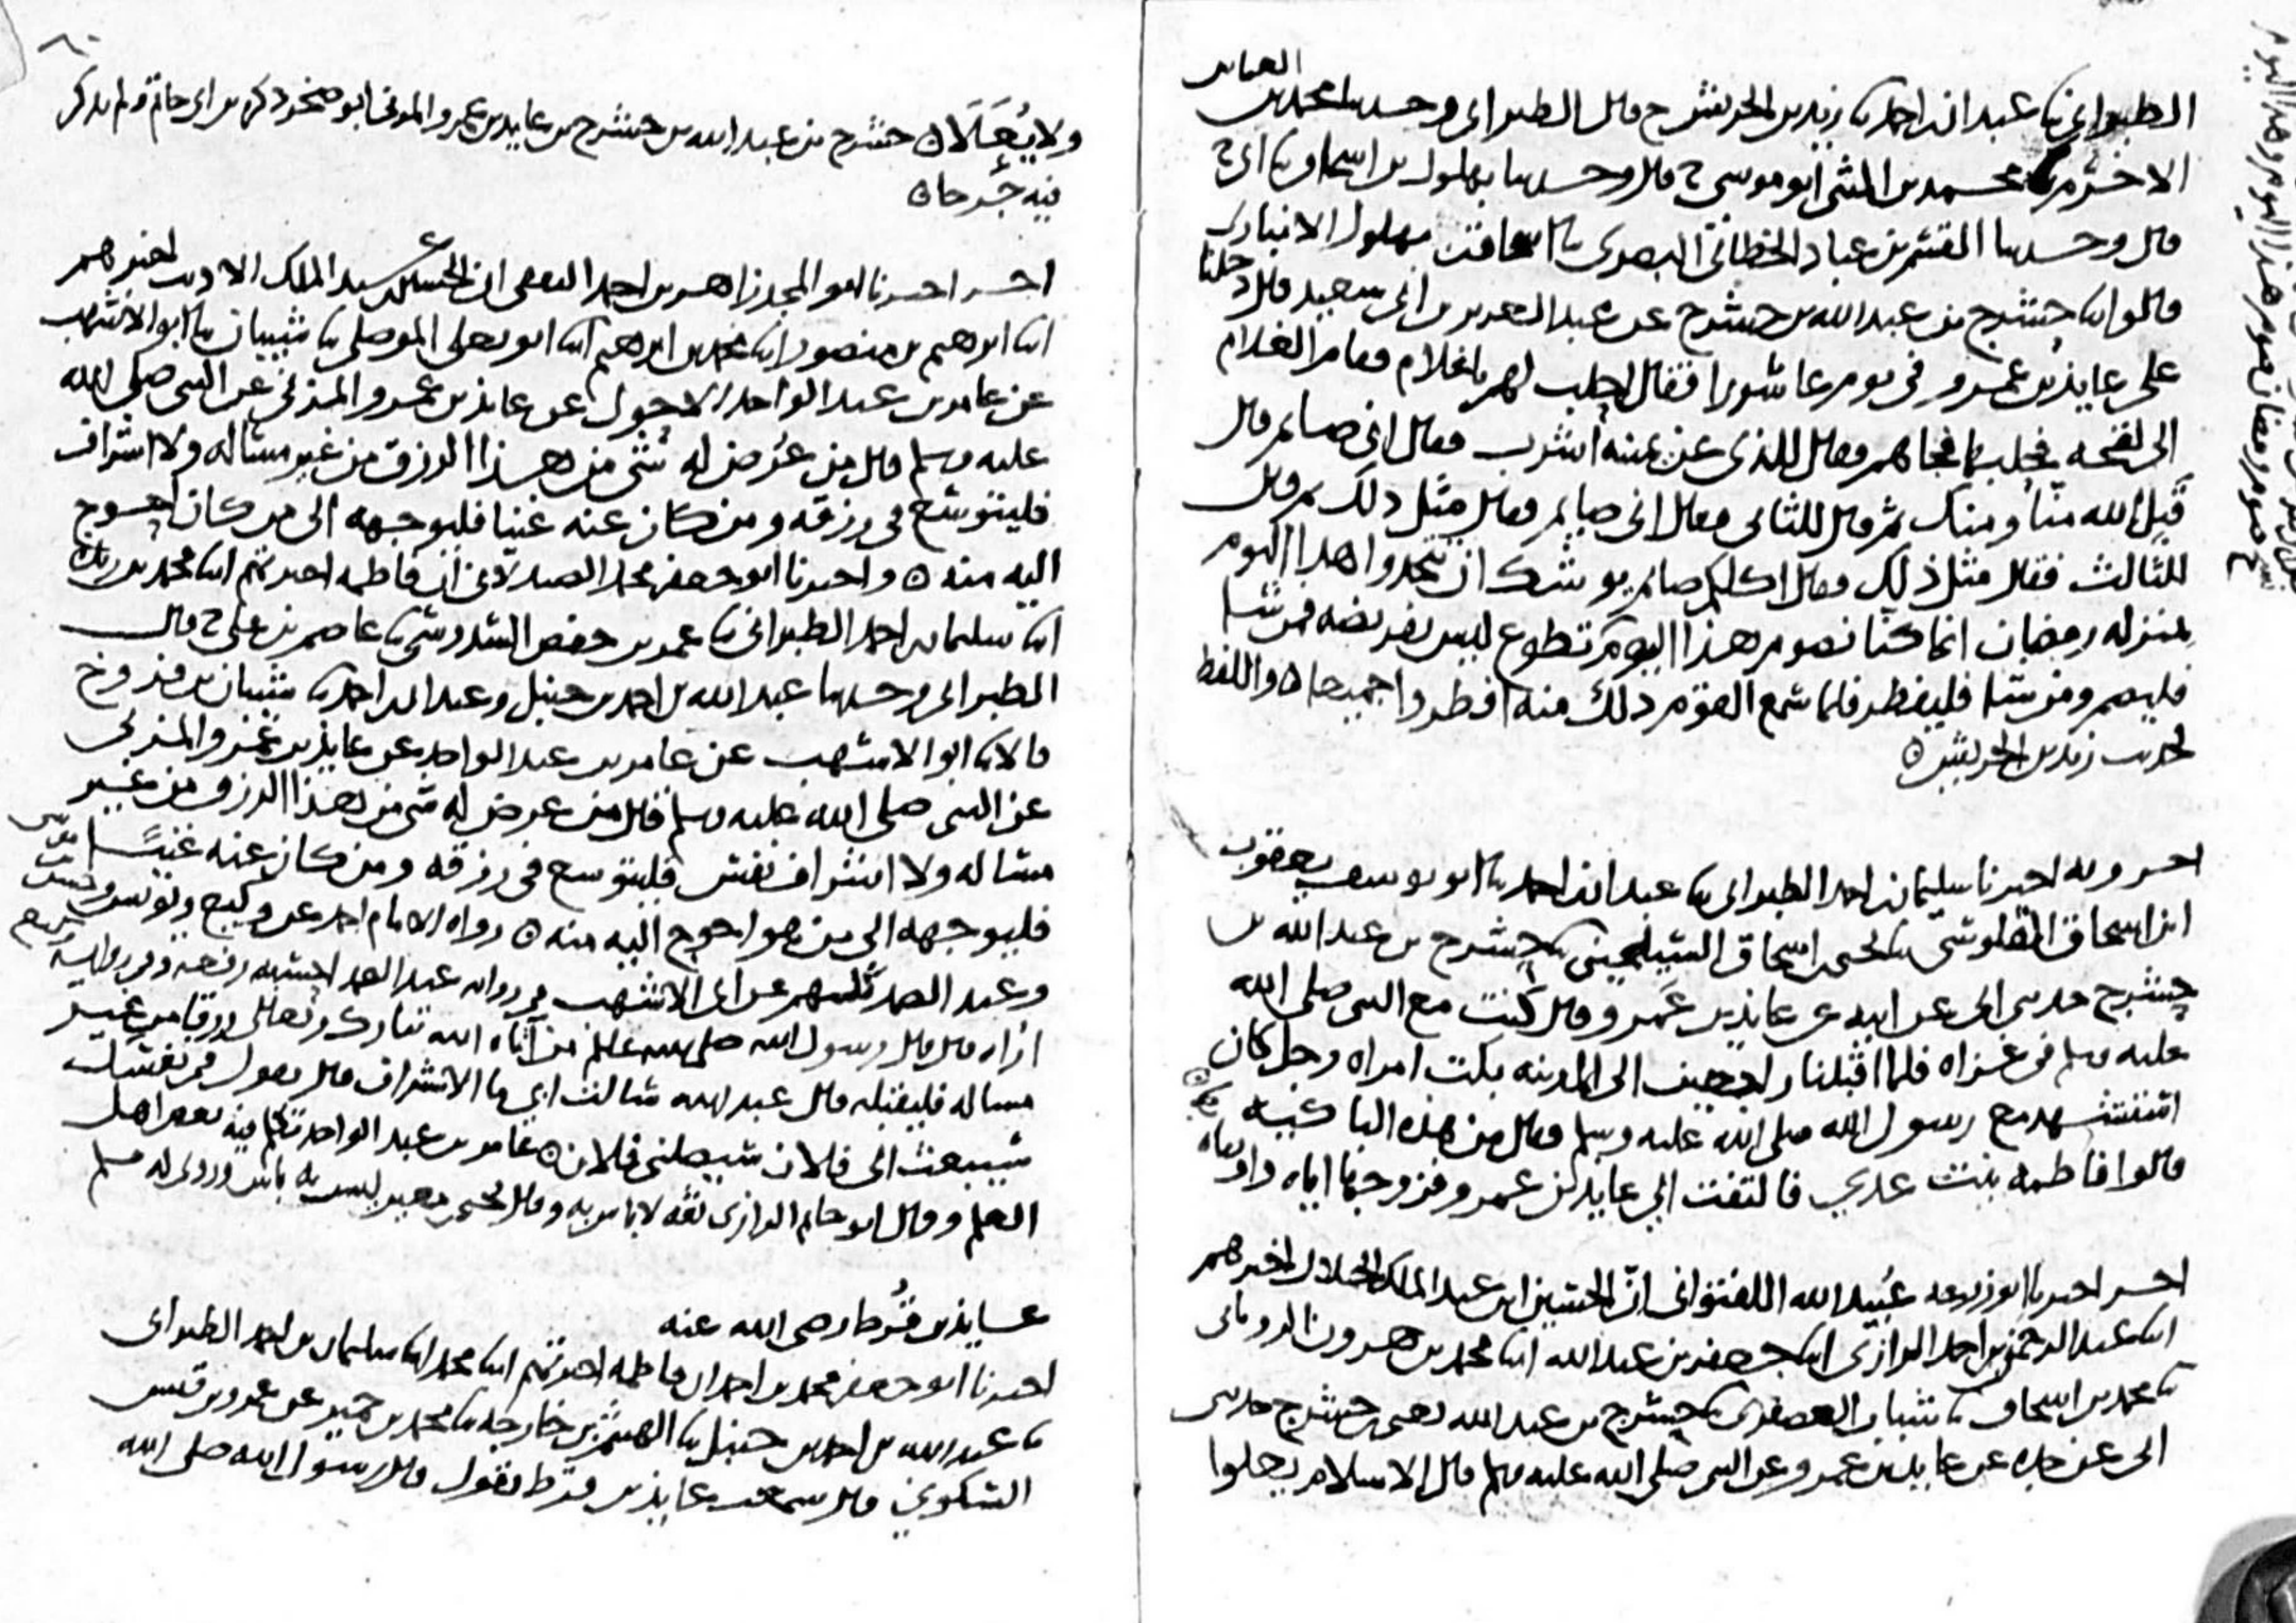 الطبراني نا عبدان بن احمد نا زيد بن الحريش ح قال الطبراني وحدثنا محمد بن العباس
الاخرم نا محمد بن المثنى ابو موسى ح قال وحدثنا بهلول بن اسحاق نا ابي ح
قال وحدثنا عباد الخطابي البصري نا اسحاق بن بهلول الانباري
قالوا انا حشرج بن عبد الله بن حشرج عن عبد العزيز بن ابي سعيد قال دخلنا
على عايذ بن عمرو في يوم عاشورا فقال احلب لهم يا غلام فقام الغلام
الى لقحه فحلبها فجاهم فقال للذي عن يمينه اشرب فقال اني صايم قال
قبل الله منا ومنك ثم قال للثاني فقال اني صايم فقال مثل ذلك ثم قال
للثالث فقال مثل ذلك فقال اكلكم صايم يوشك ان تتخذوا هذا اليوم
بمنزله رمضان انما كنا نصوم هذا اليوم تطوع ليس بفريضه فمن شا
فليصم ومن شا فليفطر فلما سمع القوم ذلك منه افطروا جميعا ه واللفظ
لحديث زيد بن الحريش ه
اخر وبه اخبرنا سليمان بن احمد الطبراني نا عبدان بن احمد نا ابو يوسف يعقوب
ابن اسحاق القلوسي نا يحيى بن اسحاق السيلحيني نا حشرج بن عبد الله بن
حشرج حدثني ابي عن ابيه عن عايذ بن عمرو قال كنت مع النبي صلى الله
عليه وسلم في غزاه فلما اقبلنا راجعين الى المدينه بكت امراه رجل كان
استشهد مع رسول الله صلى الله عليه وسلم فقال من هذه الباكيه
قالوا فاطمه بنت عدي فالتفت الى عايذ بن عمرو فزوجها اياه
اخر اخبرنا ابو زرعه عبيد الله اللفتواني ان الحسين ابن عبد الملك الخلال اخبرهم
انا عبد الرحمن بن احمد الرازي انا جعفر بن عبد الله انا محمد بن هرون الروياني
نا محمد بن اسحاق نا شباب العصفري نا حشرج بن عبد الله يعني حشرج حدثني
ابي عن جده عن عايذ بن عمرو عن النبي صلى الله عليه وسلم قال الاسلام يعلوا
ولا يعلا ه حشرج بن عبد الله بن حشرج بن عايذ بن عمرو المزني ابو صخر ذكره بن ابي حاتم ولم يذكر
فيه جرحا ه
اخر اخبرنا ابو المجد زاهر بن احمد الثقفي ان الحسين بن عبد الملك الاديب اخبرهم
انا ابرهيم بن منصور انا محمد بن ابرهيم انا ابو يعلى الموصلي نا شيبان نا ابو الاشهب
عن عامر بن عبد الواحد الاحول عن عايذ بن عمرو المزني عن النبي صلى الله
عليه وسلم قال من عرض له شي من هذا الرزق من غير مساله ولا اشراف
فليتوسع في رزقه ومن كان عنه غنيا فليوجهه الى من كان احوج
اليه منه ه واخبرنا ابو جعفر محمد الصيدلاني ان فاطمه اخبرتهم انا محمد بن ريذه
انا سليمان بن احمد الطبراني نا عمر بن حفص السدوسي نا عاصم بن علي ح قال
الطبراني وحدثنا عبد الله بن احمد بن حنبل وعبدان بن احمد نا شيبان بن فروخ
قالا نا ابو الاشهب عن عامر بن عبد الواحد عن عايذ بن عمرو المزني
عن النبي صلى الله عليه وسلم قال من عرض له شي من هذا الرزق من غير
مساله ولا اشراف نفس فليتوسع في رزقه ومن كان عنه غنيا
فليوجهه الى من هو احوج اليه منه ه رواه الامام احمد عن وكيع ويونس وحسن
وعبد الصمد كلهم عن ابي الاشهب في روايه عبد الصمد احسبه رفعه وفي روايه
اراه قال قال رسول الله صلى الله عليه وسلم من آتاه الله تبارك وتعالى رزقا من غير
مساله فليقبله قال عبد الله سالت ابي ما الاشراف قال يقول في نفسك
سيبعث الى فلان سيصلني فلان ه عامر بن عبد الواحد تكلم فيه بعض اهل
العلم وقال ابو حاتم الرازي ثقه لا باس به وقال يحيى بن معين ليس به باس وروى له مسلم
عايذ بن قرط رضي الله عنه
اخبرنا ابو جعفر محمد بن احمد ان فاطمه اخبرتهم انا محمد انا سليمان بن احمد الطبراني
نا عبد الله بن احمد بن حنبل نا الهيثم بن خارجه نا محمد بن حمير عن عمرو بن قيس
السكوني قال سمعت عايذ بن قرط يقول قال رسول الله صلى الله